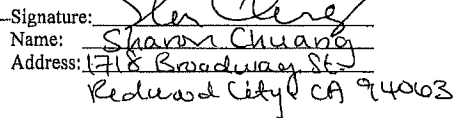 Signature:
Name: Sharon Chuang
Address: 1718 Broadway St
Redwood City CA 94063